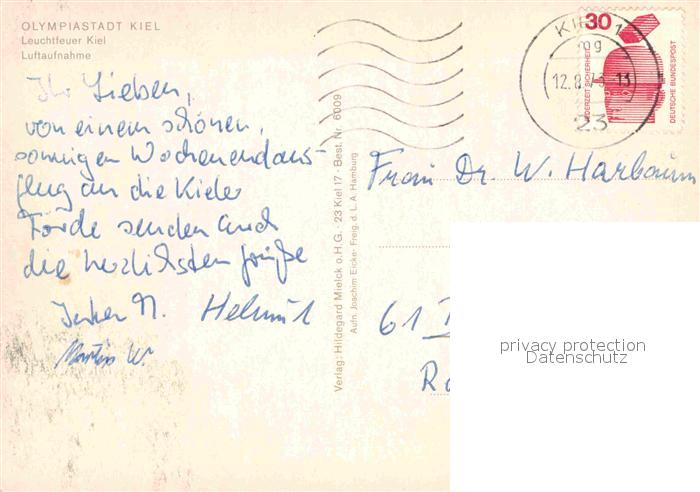 OLYMPIASTADT KIEL
Leuchtfeuer Kiel
Luftaufnahme
Ihr Lieben,
von einem schönen,
sonnigen Wochenendaus-
flug an die Kieler
Förde senden Euch
die herzlichsten Grüße
Helmut
Martin W.
Verlag: Hildegard Mielck o.H.G. · 23 Kiel 17 · Best. Nr. 6009
Aufn. Joachim Eicke · Freig. d. L. A. Hamburg
KIEL 1
mg
12.8.
13
23
30
JEDERZEIT SICHERHEIT
DEUTSCHE BUNDESPOST
Frau Dr. W. Harbaum
61
privacy protection
Datenschutz